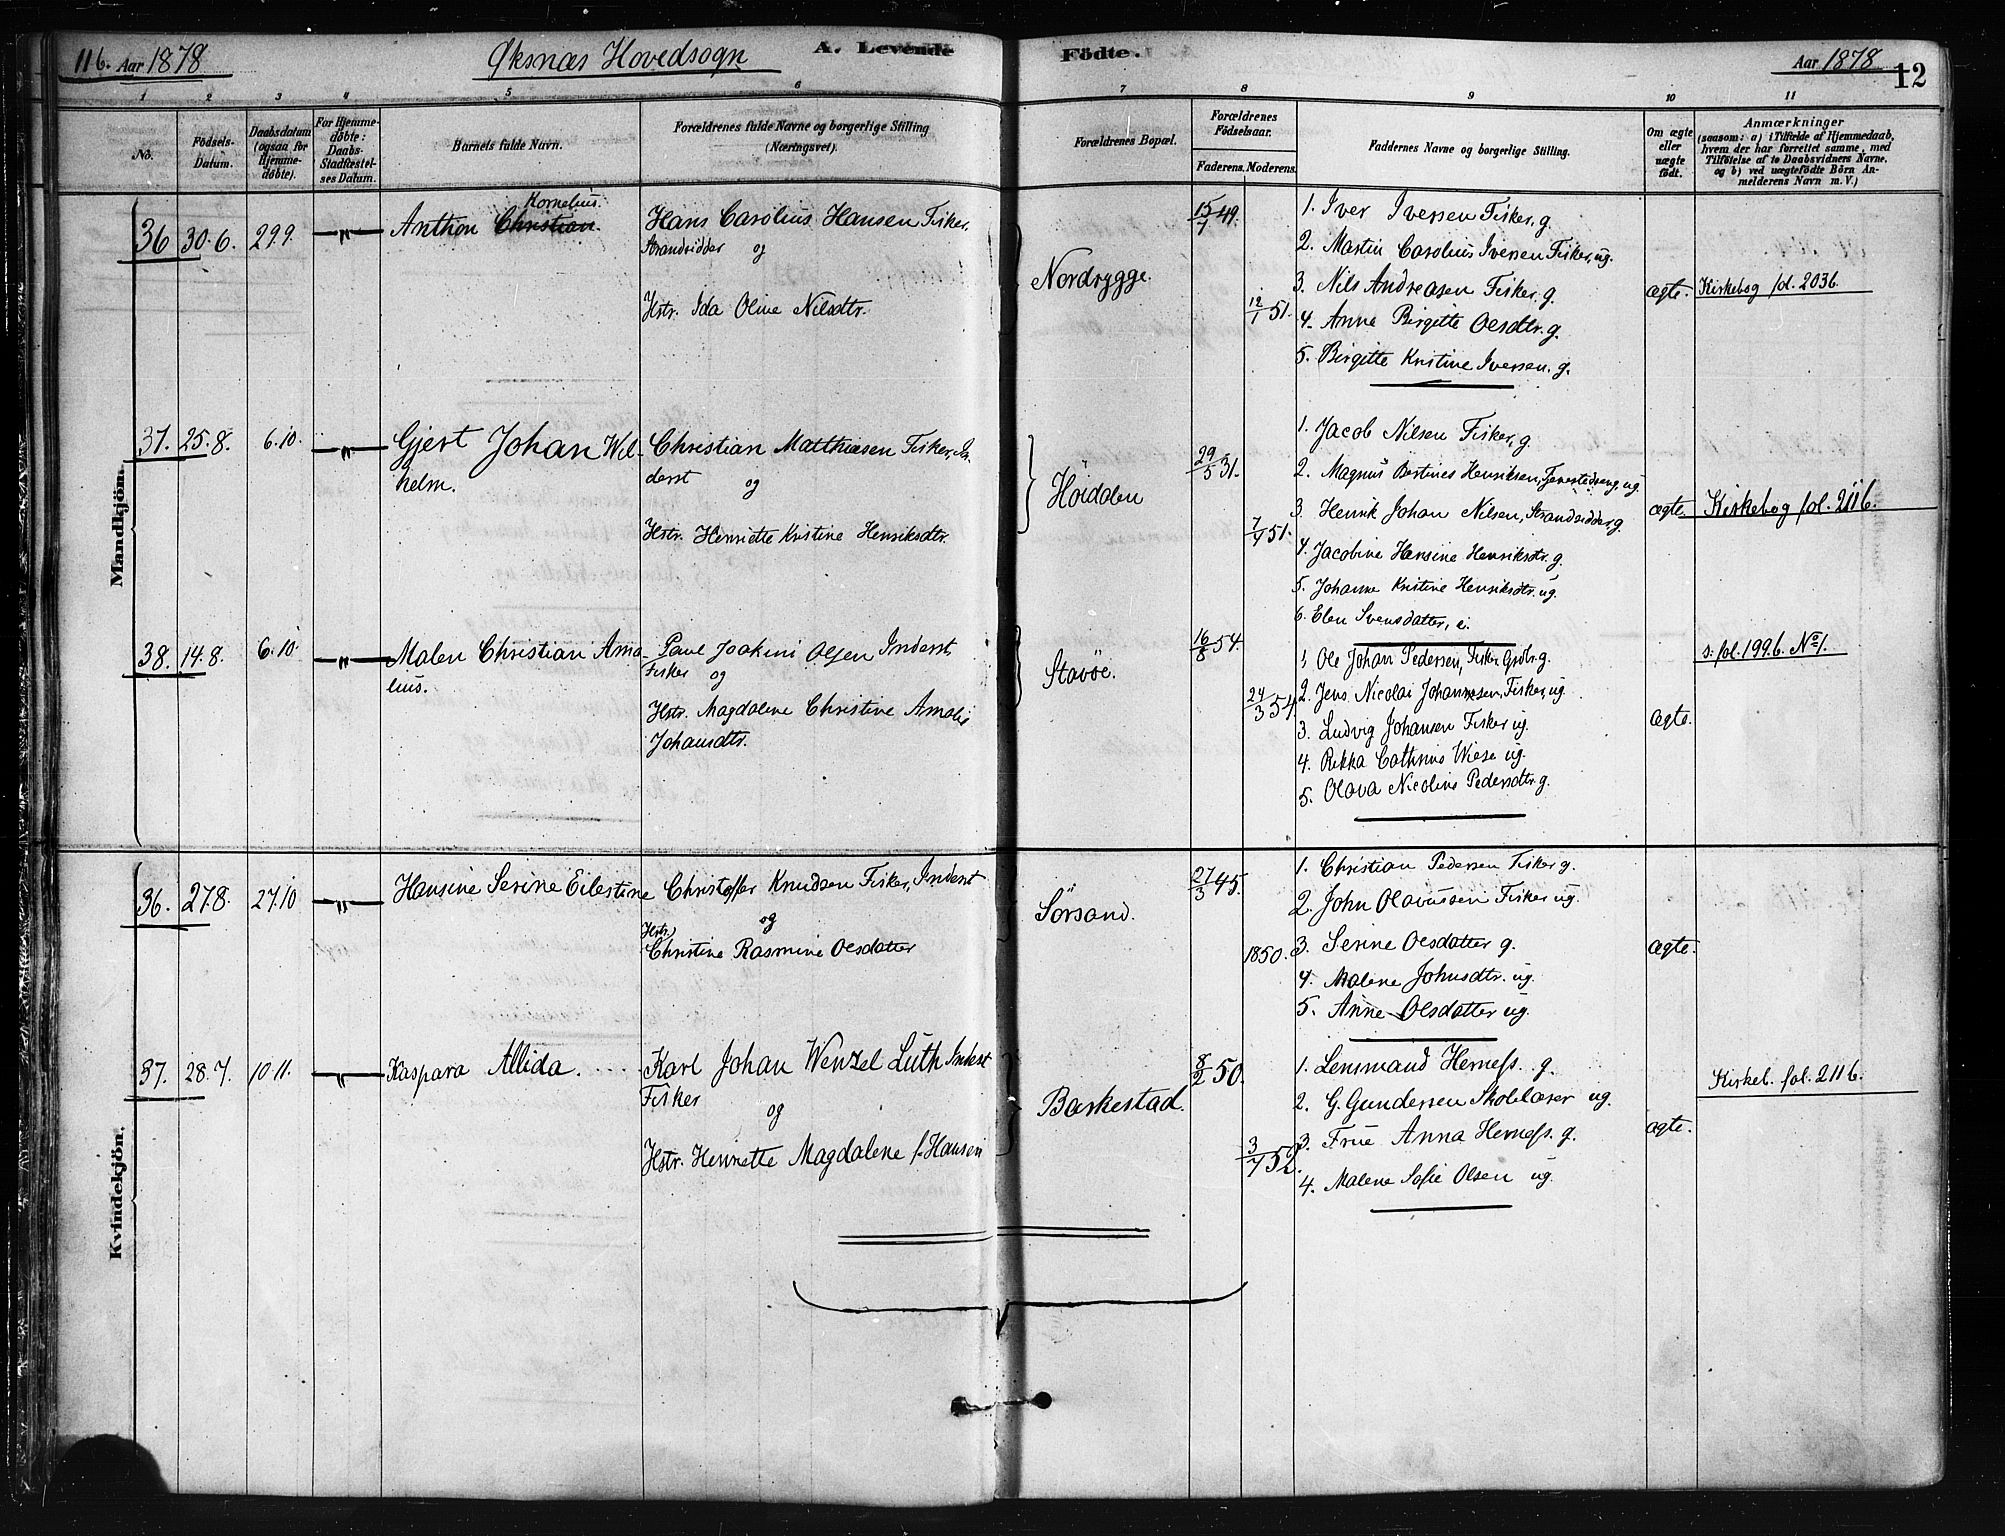 116. Aar 1878
Øksnæs Hovedsogn
A. Levende
Födte.
Aar 1878
12
1 2 3 4 5 6 7 8 9 10 11
No.
Födsels-
Datum.
Daabsdatum
(ogsaa for
Hjemme-
döbte).
For Hjemme-
döbte:
Daabs-
Stadfæstel-
ses Datum.
Barnets fulde Navn.
Forældrenes fulde Navne og borgerlige Stilling
(Næringsvei).
Forældrenes Bopæl.
Forældrenes
Födselsaar.
Faderens. Moderens.
Faddernes Navne og borgerlige Stilling.
Om ægte
eller
uægte
födt.
Anmærkninger
(saasom: a) i Tilfælde af Hjemmedaab,
hvem der har forrettet samme, med
Tilföielse af to Daabsvidners Navne,
og b) ved uægtefödte Börn An-
melderens Navn m. V.)
Mandkjön.
36 30.6. 29.9. —"—
Kornelius.
Anthon Christian.
Hans Carolius Hansen Fisker,
Strandsidder
og
Hstr. Ida Oline Nilsdtr.
Nordrygge.
15/7 49.
12/1 51.
1. Iver Iversen Fisker, g.
2. Martin Carolius Iversen Fisker, ug.
3. Nils Andreasen Fisker g.
4. Anne Birgitte Oesdtr. g.
5. Birgitte Kristine Iversen. g.
ægte.
Kirkebog fol. 2036.
37. 25.8. 6.10. —"—
Gjert Johan Wil-
helm.
Christian Matthiasen Fisker, In-
derst
og
Hstr. Henriette Kristine Henriksdtr.
Höidden
29/5 31.
7/7 51.
1. Jacob Nilsen Fisker, g.
2. Magnus Bertines Henriksen, ug.
3. Henrik Johan Nilsen, Strandsidder g.
4. Jacobine Hansine Henriksdtr. g.
5. Johanne Kristine Henriksdtr. ug.
6. Elen Svensdatter, e.
ægte.
Kirkebog fol. 2116.
38. 14.8. 6.10. —"—
Malen Christian Ama-
lius.
Paul Joakim Olsen Inderst
Fisker og
Hstr. Magdalene Christine Amalie
Johansdtr.
Stavöe.
16/8 54.
24/3 54.
1. Ole Johan Pedersen, Fisker, Grdbr. g.
2. Jens Nicolai Johannesen, Fisker, ug.
3. Ludvig Johansen Fisker ug.
4. Rikka Cathrine Wiese ug.
5. Olava Nicoline Pedersdtr. g.
ægte.
s. fol. 1996. No 1.
Kvindekjön.
36. 27.8. 27.10 —"—
Hansine Serine Eilestine
Christoffer Knudsen Fisker, Inderst
og
Hstr.
Christine Rasmine Oesdatter
Sörsand.
27/3 45.
1850.
1. Christian Pedersen Fisker g.
2. John Olavussen Fisker ug.
3. Serine Oesdatter g.
4. Malene Johnsdtr. ug.
5. Anne Olsdatter ug.
ægte.
37. 28.7. 10.11. —"—
Kaspara Allida.
Karl Johan Wenzel Luth Inderst
Fisker
og
Hstr. Henriette Magdalene f. Hansen
Barkestad.
8/2 50.
3/7 52.
1. Lensmand Herness. g.
2. G. Gundersen Skolelærer ug.
3. Frue Anna Herness. g.
4. Malene Sofie Olsen ug.
ægte.
Kirkeb. fol. 2116.